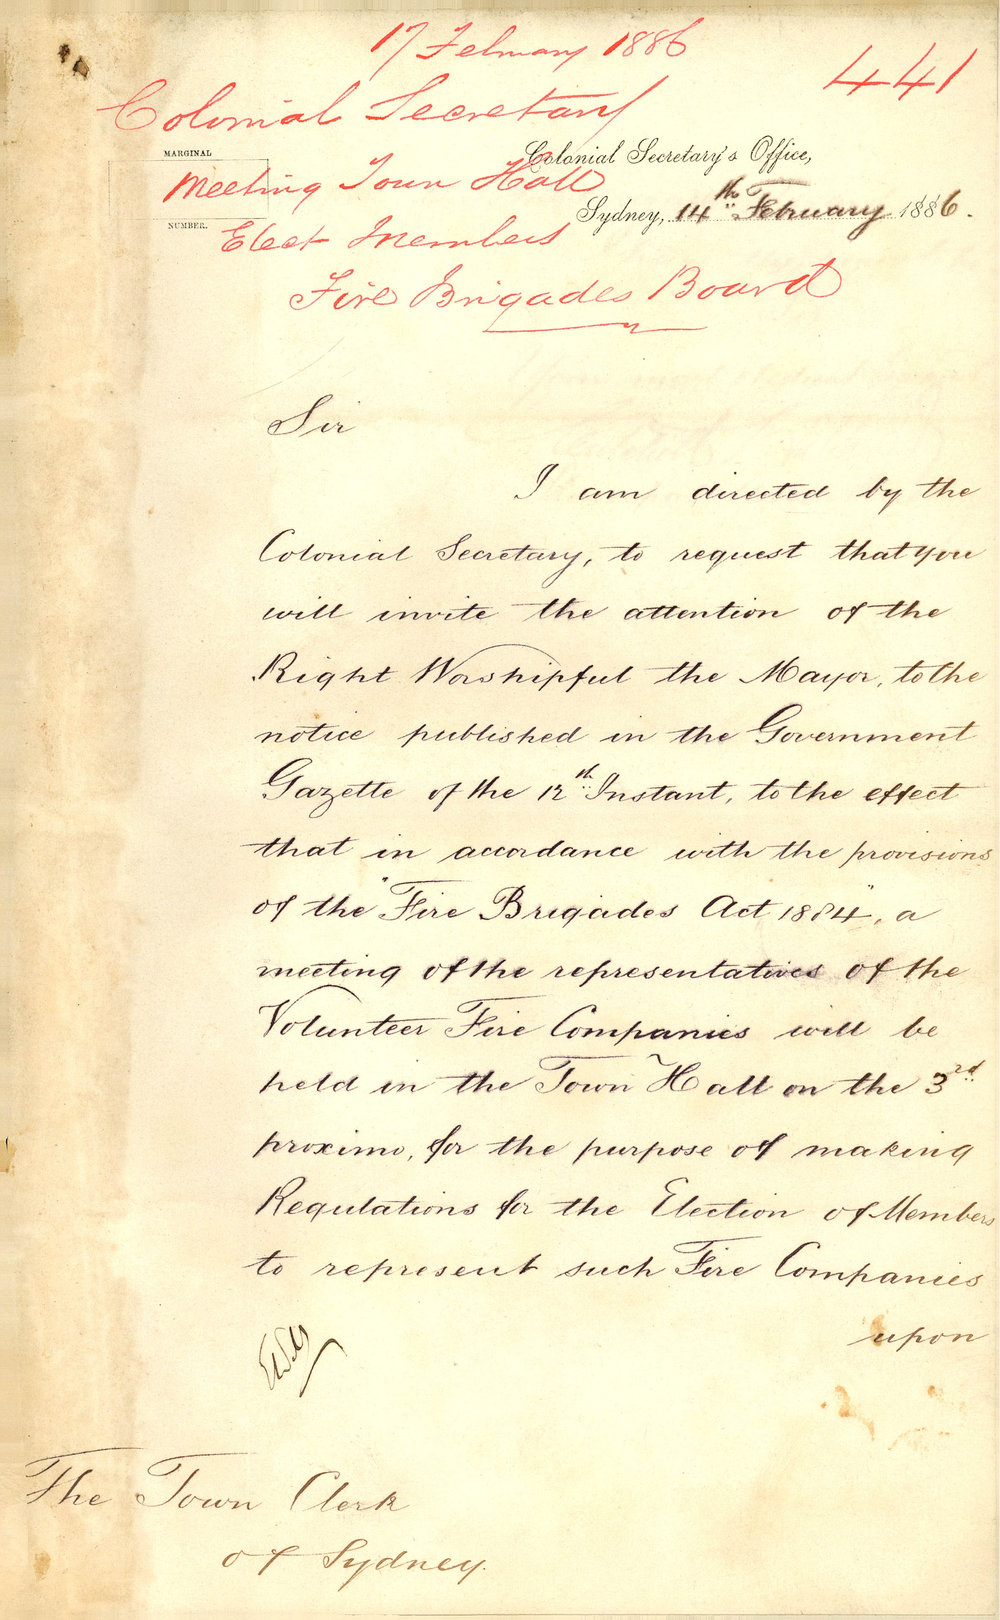 17 February 1886
441
Colonial Secretary
MARGINAL
Colonial Secretary's Office,
Meeting Town Hall
Sydney, 14th February 1886.
NUMBER.
Elect Members
Fire Brigades Board
Sir
I am directed by the
Colonial Secretary, to request that you
will invite the attention of the
Right Worshipful the Mayor, to the
notice published in the Government
Gazette of the 12th Instant, to the effect
that in accordance with the provisions
of the "Fire Brigades Act 1884", a
meeting of the representatives of the
Volunteer Fire Companies will be
held in the Town Hall on the 3rd
proximo, for the purpose of making
Regulations for the Election of Members
to represent such Fire Companies
upon
The Town Clerk
of Sydney.